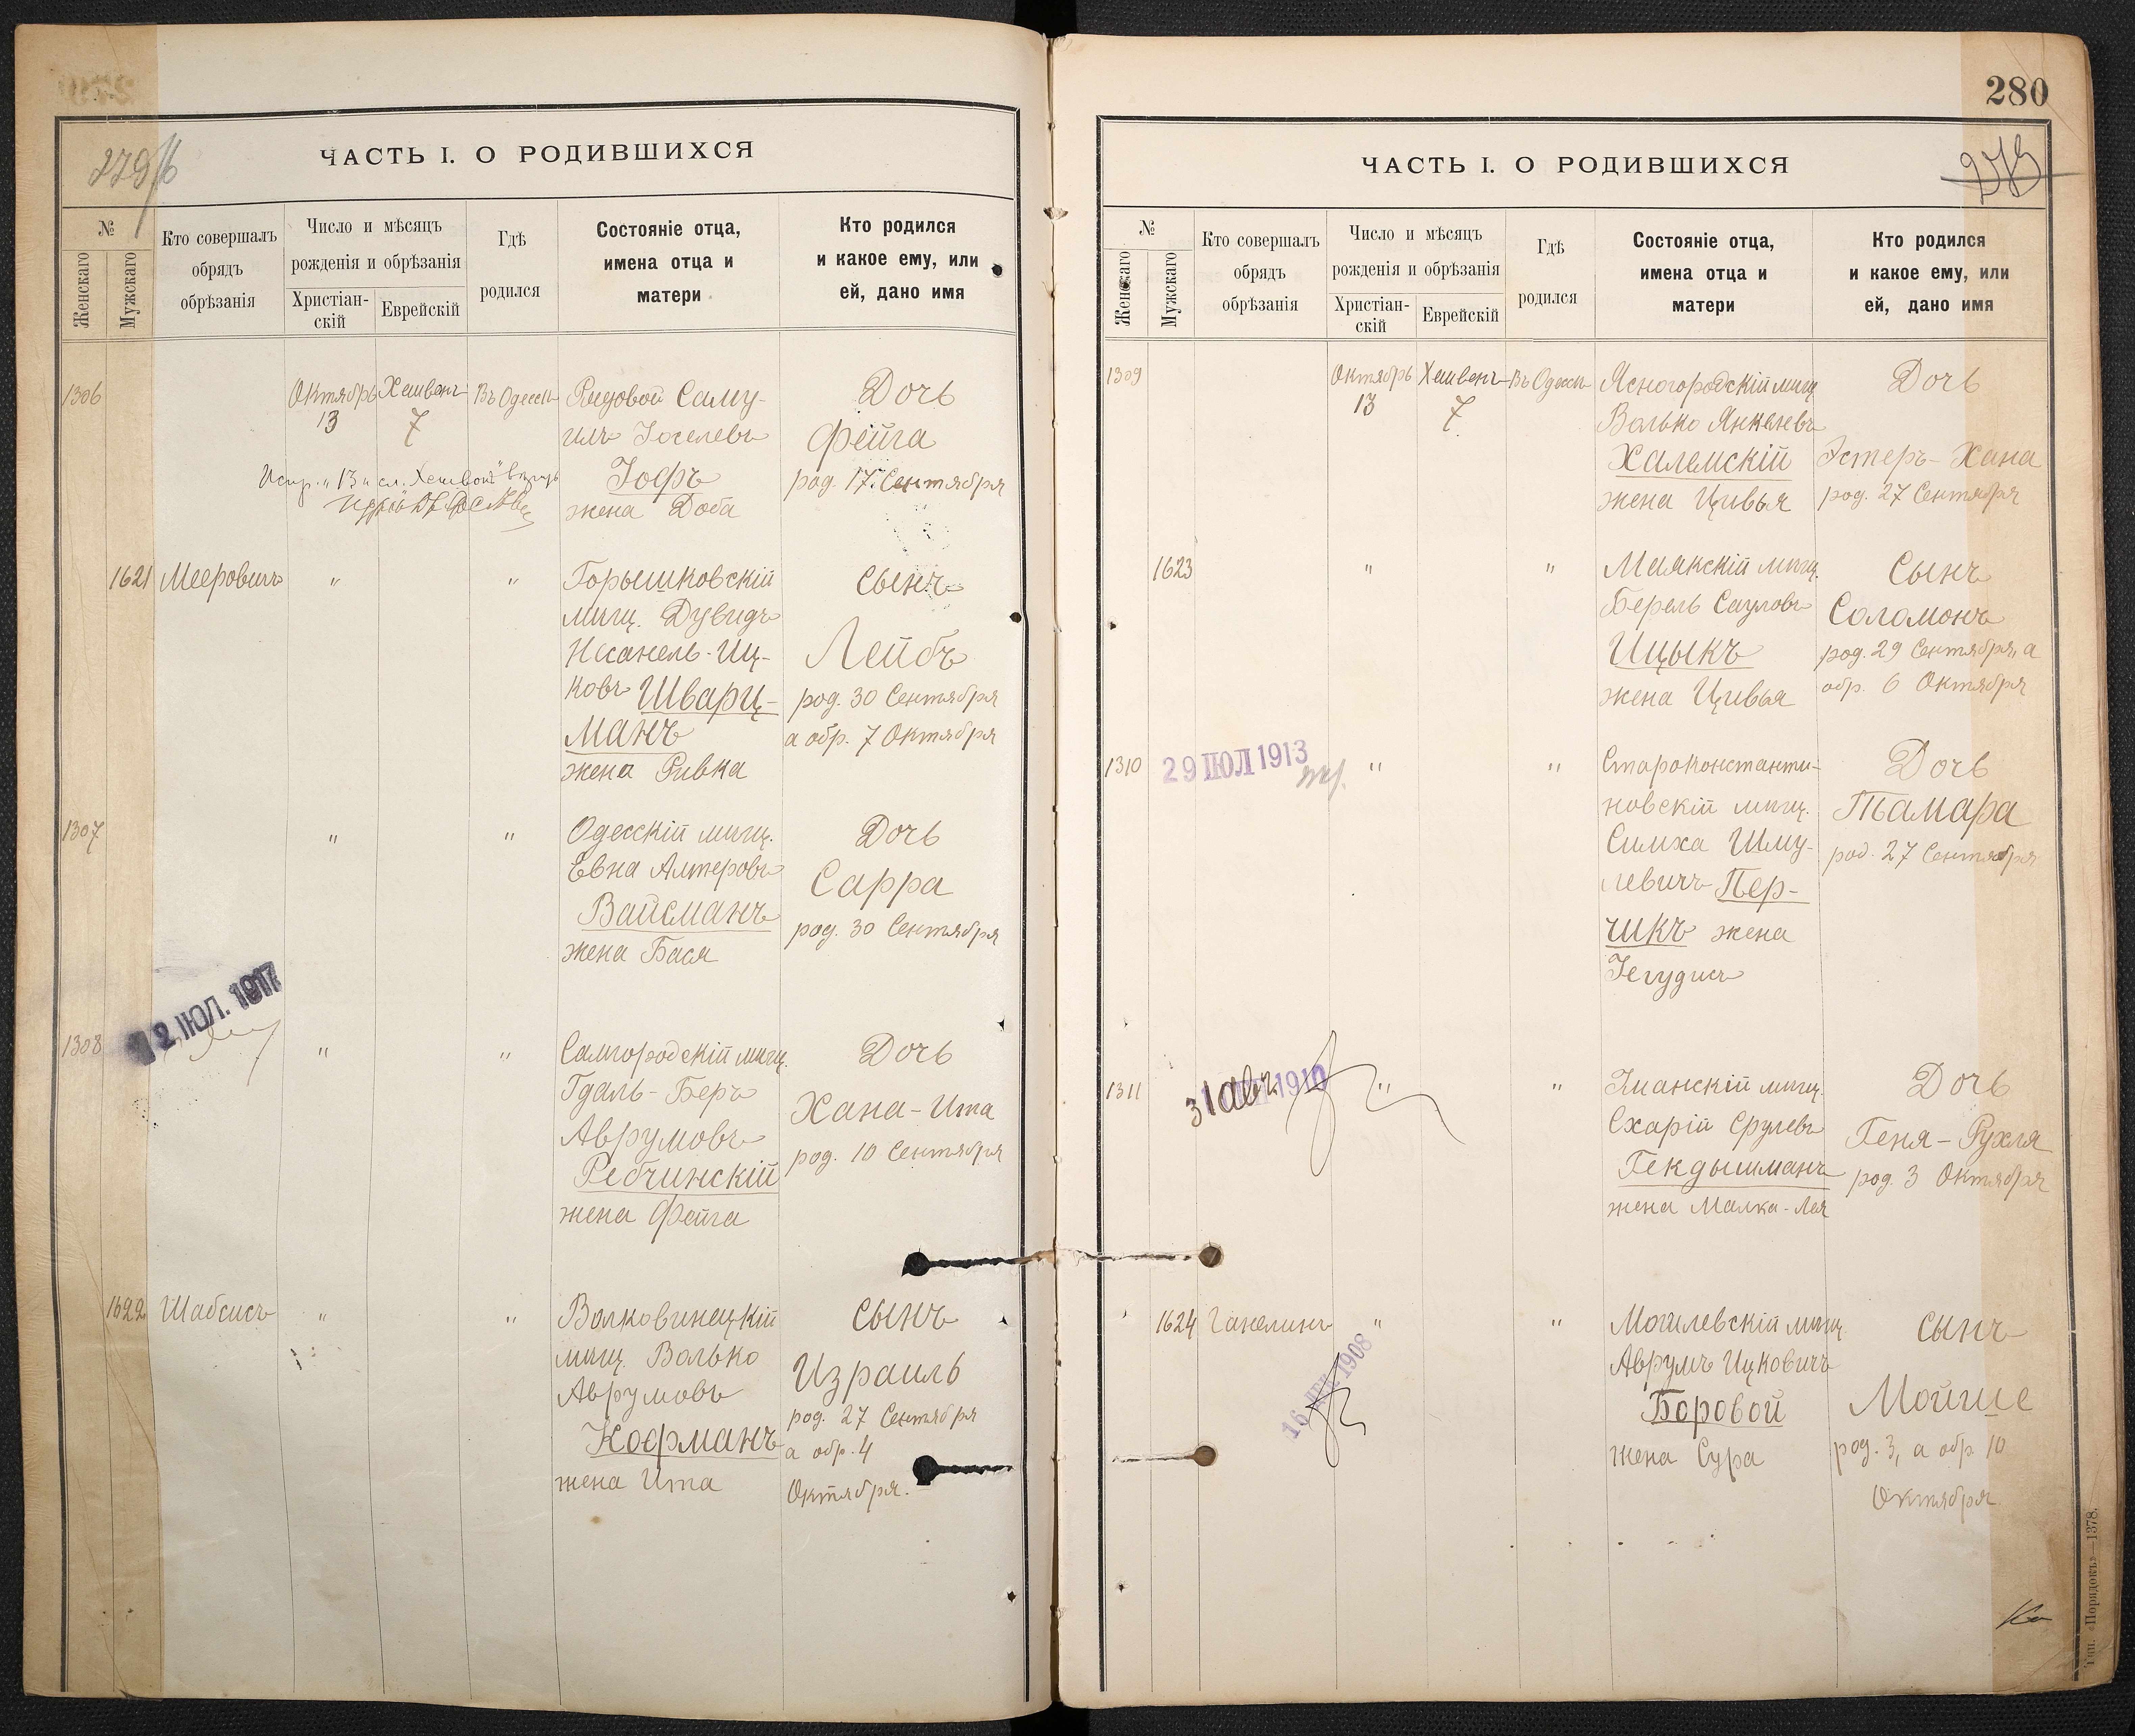 279/б
ЧАСТЬ I. О РОДИВШИХСЯ
№
Женскаго
Мужскаго
Кто совершалъ
обрядъ
обрѣзанія
Число и мѣсяцъ
рожденія и обрѣзанія
Христіан-
скій
Еврейскій
Гдѣ
родился
Состояніе отца,
имена отца и
матери
Кто родился
и какое ему, или
ей, дано имя
1306
Октябрь
13
Хешванъ
7
Въ Одессѣ
Рядовой Саму-
илъ Іоселевъ
Іофъ
жена Доба
Дочь
Фейга
род. 17 Сентября
Испр. "13" сл. Хешвон"
1621
Мееровичъ
"
"
Горышковскій
мѣщ. Дувидъ
Нсанель-Иц-
ковъ Шварц-
манъ
жена Ривка
Сынъ
Лейбъ
род. 30 Сентября
а обр. 7 Октября
1307
"
"
Одесскій мѣщ.
Евна Алтеровъ
Вайсманъ
жена Бася
Дочь
Сарра
род. 30 Сентября
1308
12 ІЮЛ. 1917
"
"
Самгородскій мѣщ.
Гдаль-Беръ
Аврумовъ
Ребчинскій
жена Фейга
Дочь
Хана-Ита
род. 10 Сентября
1622
Шабсисъ
"
"
Волковинецкій
мѣщ. Волько
Аврумовъ
Кофманъ
жена Ита
Сынъ
Израиль
род. 27 Сентября
а обр. 4
Октября.
280
279
ЧАСТЬ I. О РОДИВШИХСЯ
№
Женскаго
Мужскаго
Кто совершалъ
обрядъ
обрѣзанія
Число и мѣсяцъ
рожденія и обрѣзанія
Христіан-
скій
Еврейскій
Гдѣ
родился
Состояніе отца,
имена отца и
матери
Кто родился
и какое ему, или
ей, дано имя
1309
Октябрь
13
Хешванъ
7
Въ Одессѣ
Ясногородскій мѣщ.
Волько Янкелевъ
Халемскій
жена Цивья
Дочь
Эстеръ-Хана
род. 27 Сентября
1623
"
"
Маякскій мѣщ.
Берель Сауловъ
Ицыкъ
жена Цивья
Сынъ
Соломонъ
род. 29 Сентября, а
обр. 6 Октября
1310
29 ІЮЛ 1913
"
"
Староконстанти-
новскій мѣщ.
Симха Шму-
левичъ Пер-
чикъ жена
Іегудисъ
Дочь
Тамара
род. 27 Сентября
1311
31 Авг 1910
"
"
Уманскій мѣщ.
Схарій Срулевъ
Гекдышманъ
жена Малка-Лея
Дочь
Геня-Рухля
род. 3 Октября
1624
Ганелинъ
16 ДЕК 1908
"
"
Могилевскій мѣщ.
Аврумъ Ицковичъ
Боровой
жена Сура
Сынъ
Мойше
род. 3, а обр. 10
Октября
Тип. «Порядокъ»—1378.